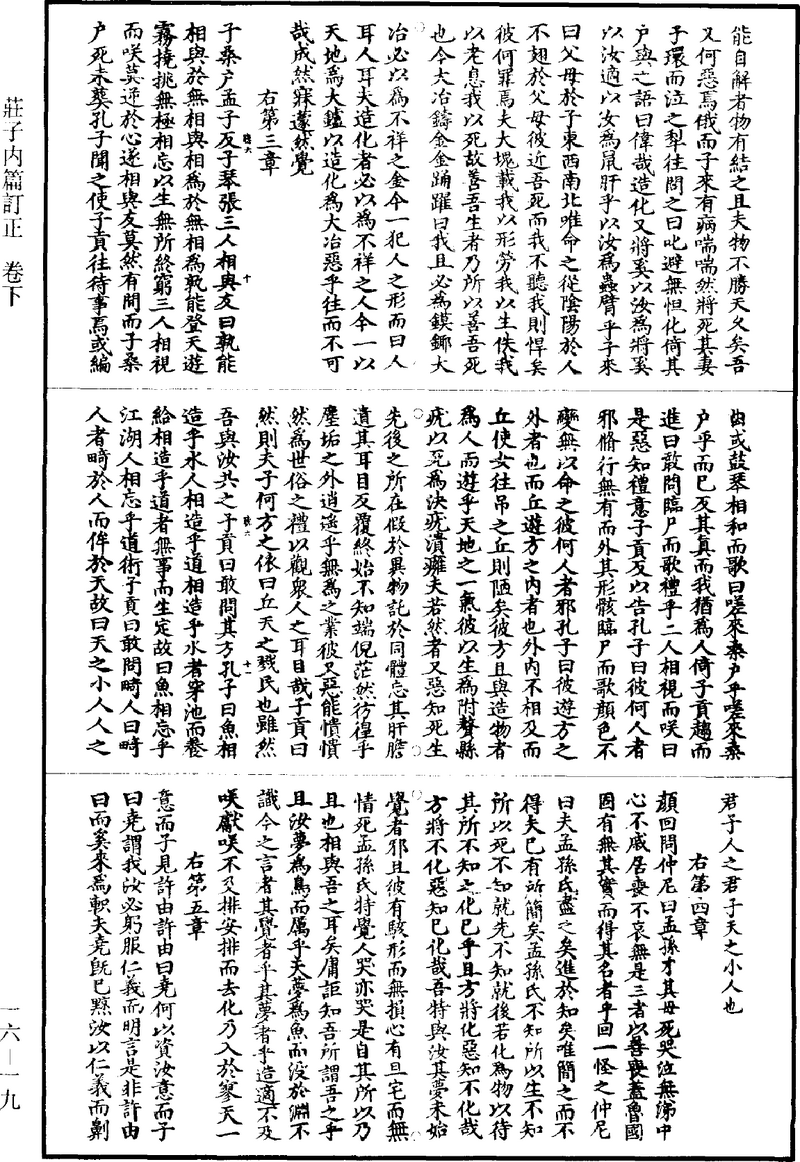 莊子內篇訂正　卷下
能自解者物有結之且夫物不勝天久矣吾
又何惡焉俄而子來有病喘喘然將死其妻
子環而泣之犁往問之曰叱避無怛化倚其
户與之語曰偉哉造化又將奚以汝爲將奚
以汝適以汝爲鼠肝乎以汝爲蟲臂乎子來
曰父母於子東西南北唯命之從陰陽於人
不翅於父母彼近吾死而我不聽我則悍矣
彼何罪焉夫大塊載我以形勞我以生佚我
以老息我以死故善吾生者乃所以善吾死
也今大冶鑄金金踊躍曰我且必爲鏌鎁大
冶必以爲不祥之金今一犯人之形而曰人
耳人耳夫造化者必以爲不祥之人今一以
天地爲大鑪以造化爲大冶惡乎往而不可
哉成然寐蘧然覺
右第三章
子桑户孟子反子琴張三人相與友曰孰能
相與於無相與相爲於無相爲孰能登天遊
霧撓挑無極相忘以生無所終窮三人相視
而咲莫逆於心遂相與友莫然有間而子桑
户死未葬孔子聞之使子貢往待事焉或編
曲或鼓琴相和而歌曰嗟來桑户乎嗟來桑
户乎而已反其真而我猶爲人倚子貢趨而
進曰敢問臨尸而歌禮乎二人相視而咲曰
是惡知禮意子貢反以告孔子曰彼何人者
邪脩行無有而外其形骸臨尸而歌顔色不
變無以命之彼何人者邪孔子曰彼遊方之
外者也而丘遊方之内者也外内不相及而
丘使女往吊之丘則陋矣彼方且與造物者
爲人而遊乎天地之一氣彼以生爲附贅縣
疣以死爲決疣潰癰夫若然者又惡知死生
先後之所在假於異物託於同體忘其肝膽
遺其耳目反覆終始不知端倪茫然彷徨乎
塵垢之外逍遥乎無爲之業彼又惡能憒憒
然爲世俗之禮以觀衆人之耳目哉子貢曰
然則夫子何方之依曰丘天之戮民也雖然
吾與汝共之子貢曰敢問其方孔子曰魚相
造乎水人相造乎道相造乎水者穿池而養
給相造乎道者無事而生定故曰魚相忘乎
江湖人相忘乎道術子貢曰敢問畸人曰畸
人者畸於人而侔於天故曰天之小人人之
君子人之君子天之小人也
右第四章
顔回問仲尼曰孟孫才其母死哭泣無涕中
心不戚居喪不哀無是三者以善喪蓋魯國
固有無其實而得其名者乎回一怪之仲尼
曰夫孟孫氏盡之矣進於知矣唯簡之而不
得夫已有所簡矣孟孫氏不知所以生不知
所以死不知就先不知就後若化爲物以待
其所不知之化已乎且方將化惡知不化哉
方將不化惡知已化哉吾特與汝其夢未始
覺者邪且彼有駭形而無損心有旦宅而無
情死孟孫氏特覺人哭亦哭是自其所以乃
且也相與吾之耳矣庸詎知吾所謂吾之乎
且汝夢爲鳥而厲乎天夢爲魚而没於淵不
識今之言者其覺者乎其夢者乎造適不及
咲獻咲不及排安排而去化乃入於寥天一
右第五章
意而子見許由許由曰堯何以資汝意而子
曰堯謂我汝必躬服仁義而明言是非許由
曰而奚來爲軹夫堯既已黥汝以仁義而劓
一六—一九